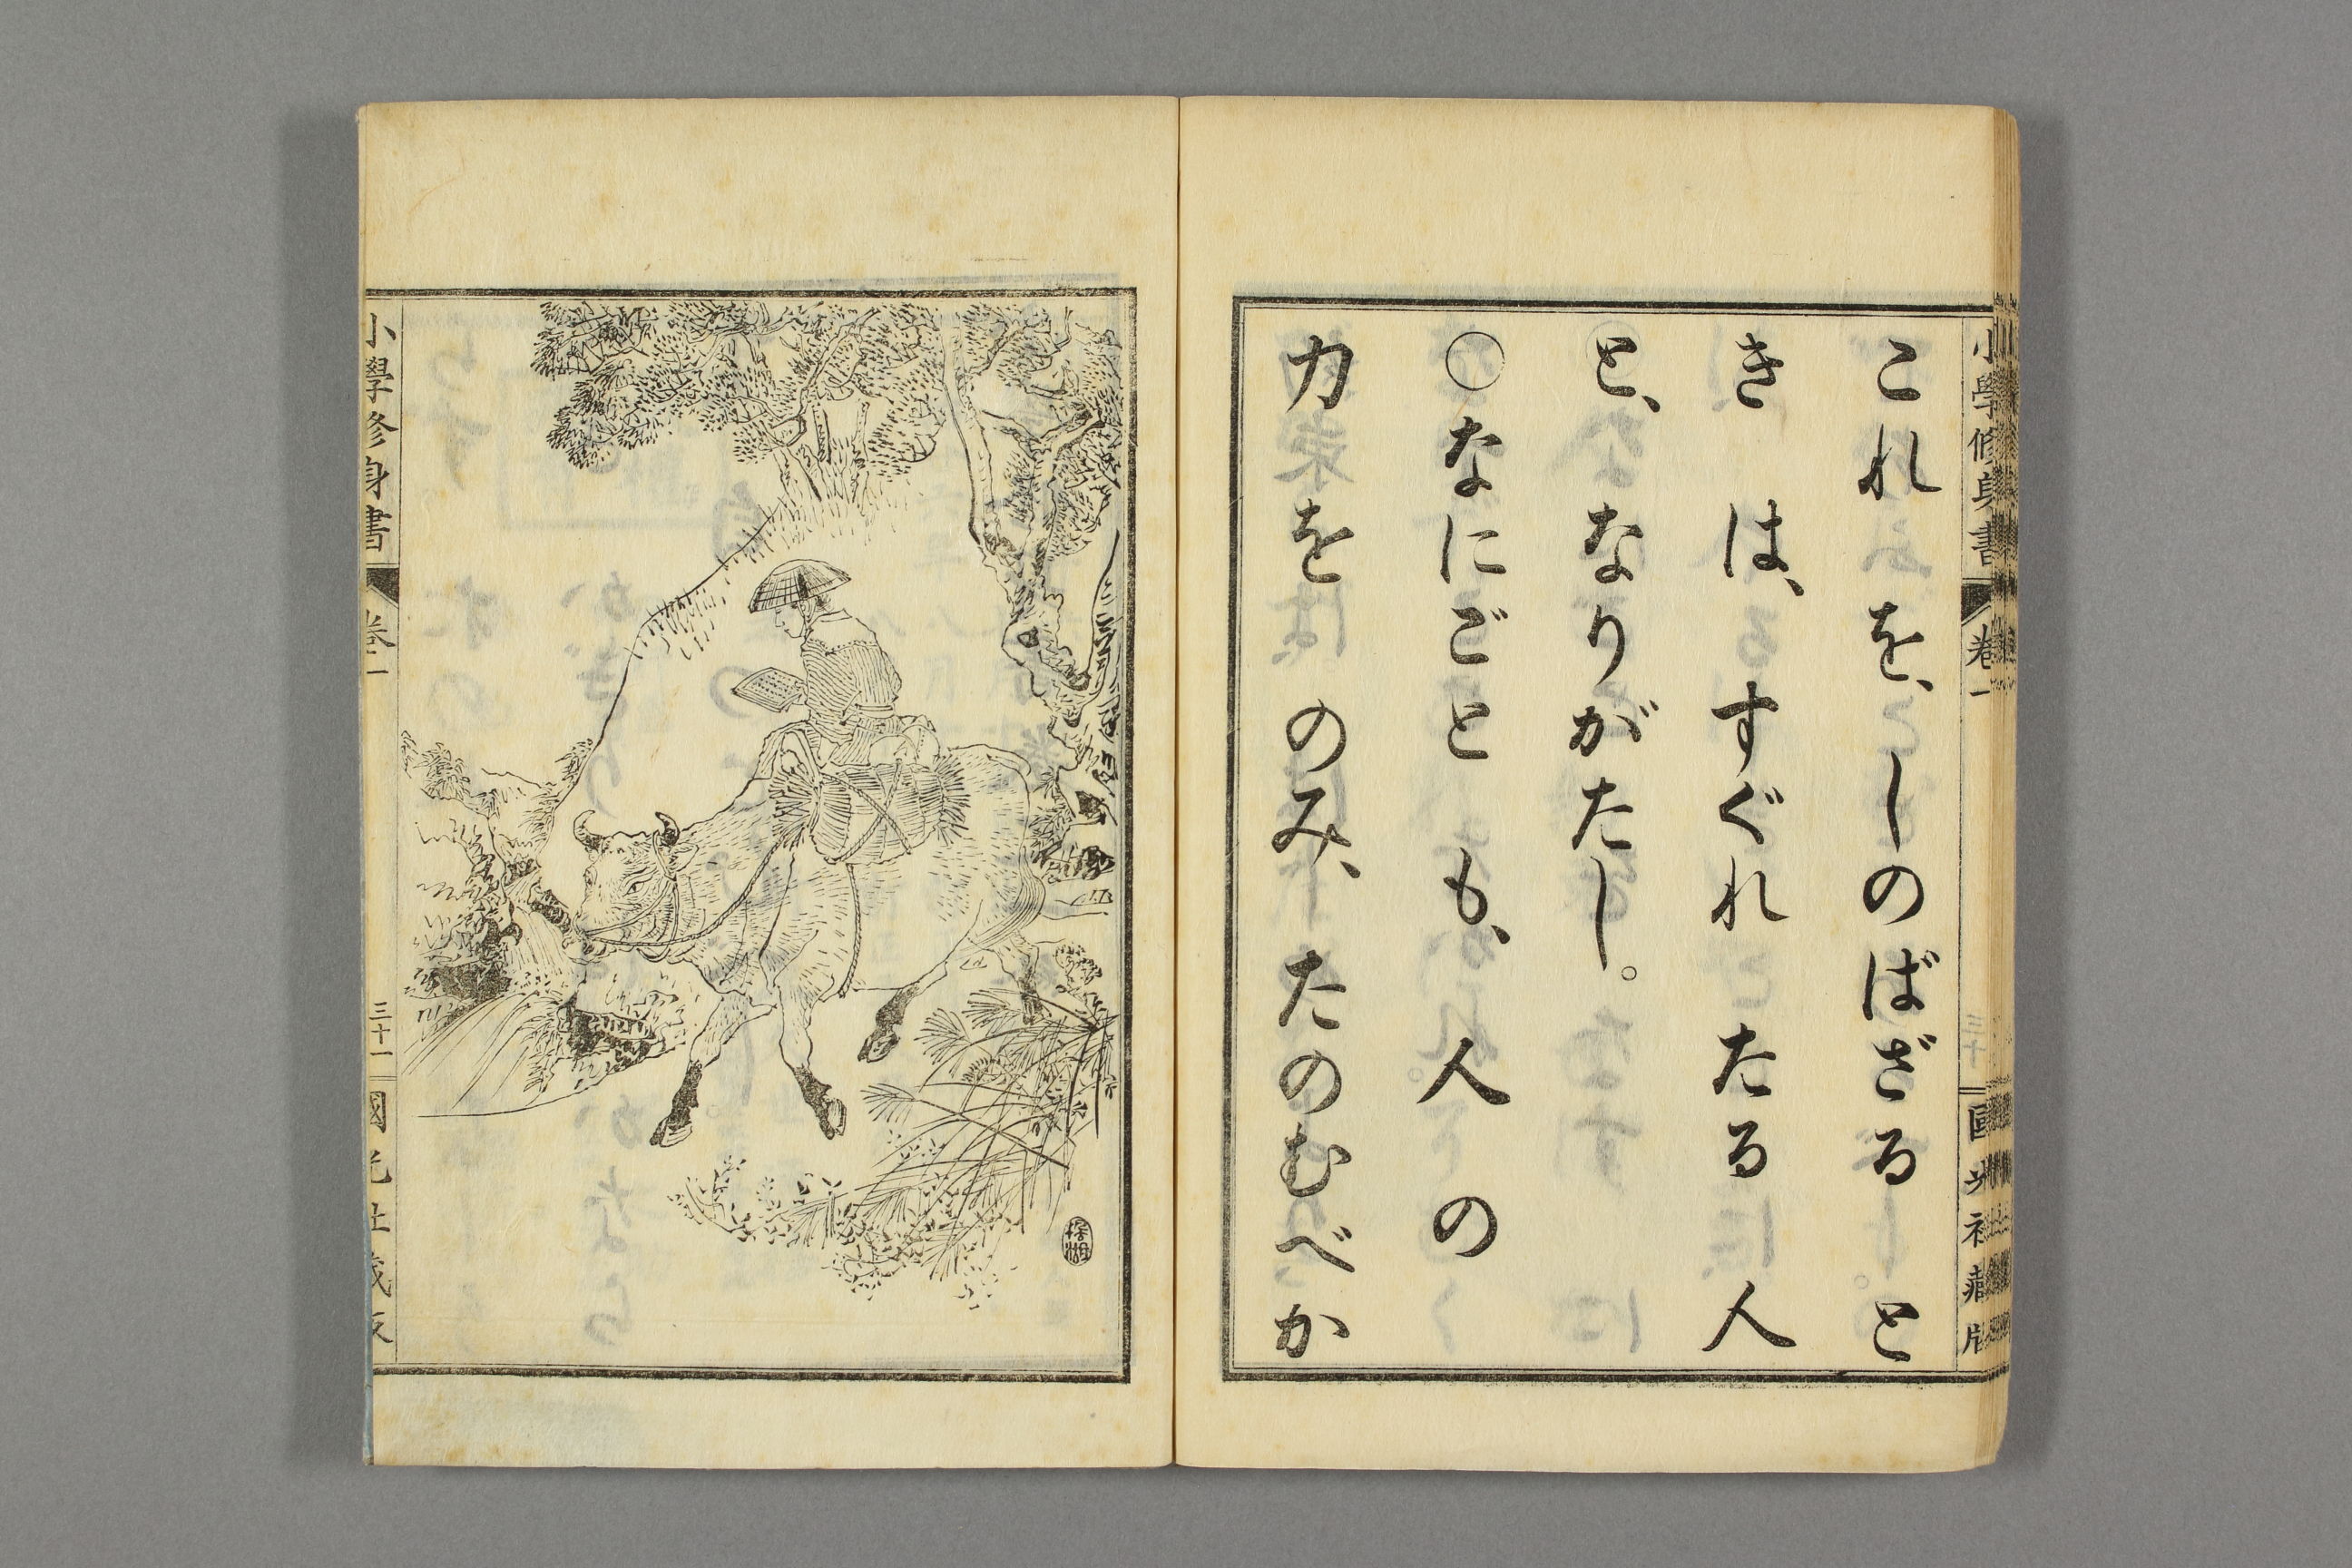 小學修身書 卷一 三十 國光社藏版
これを、しのばざると
きは、すぐれたる人
と、なりがたし。
○なにごとも、人の
力をのみ、たのむべか
小學修身書 卷一 三十一 國光社藏版